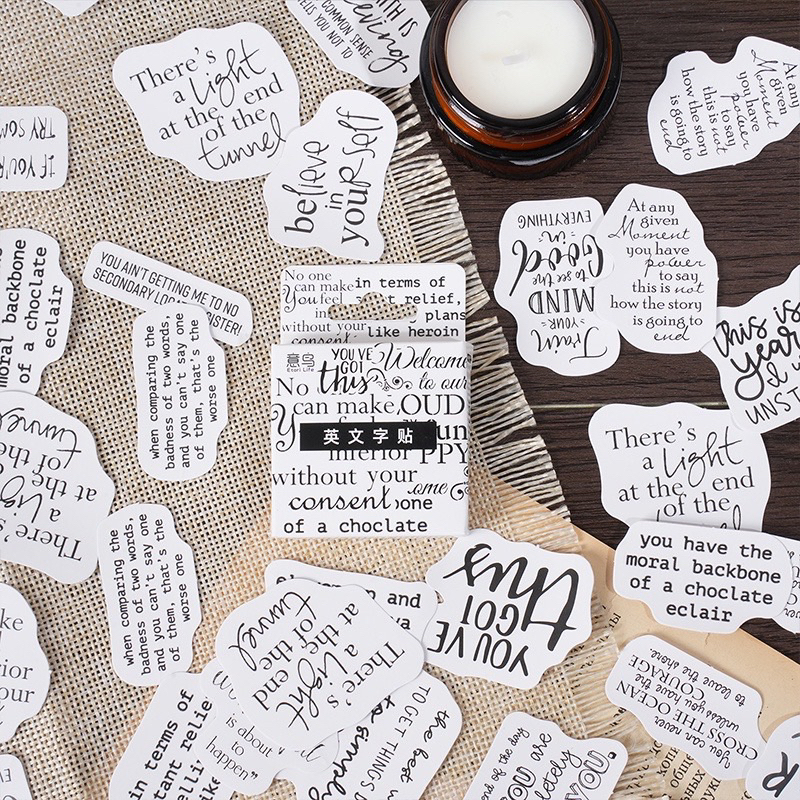 COMMON SENSE
TELLS YOU NOT TO
There's
a light
at the end
of the
tunnel
believe
in
yourself
At any
given
Moment
you have
power
to say
this is not
how the story
is going to
end
TRY SOM
IF YOU'R
Train
YOUR
MIND
to see the
Good
in
EVERYTHING
At any
given
Moment
you have
power
to say
this is not
how the story
is going to
end
moral backbone
of a choclate
eclair
YOU AIN'T GETTING ME TO NO
when comparing the
badness of two words,
and you can't say one
of them, that's the
worse one
No one
can make
You feel
without your
consent
in terms of
relief,
plans
like heroin
意鸟
Esori Life
YOU'VE
GOT
this
Welcome
to our
No
can make
OUD
英文字贴
inferior
PPY
without your
ome
consent
one
of a choclate
this is
year
I
UNST
There's
a light
at the end
of the
tunnel
There's
a light
at the end
of the
you have the
moral backbone
of a choclate
eclair
when comparing the
badness of two words,
and you can't say one
of them, that's the
worse one
YOU'VE
GOT
this
There's
a light
at the end
of the
tunnel
You can never
CROSS THE OCEAN
unless you have the
COURAGE
to leave the shore.
in terms of
is about
to
happen"
TO GET THINGS D
the best
YOU are
YOU.